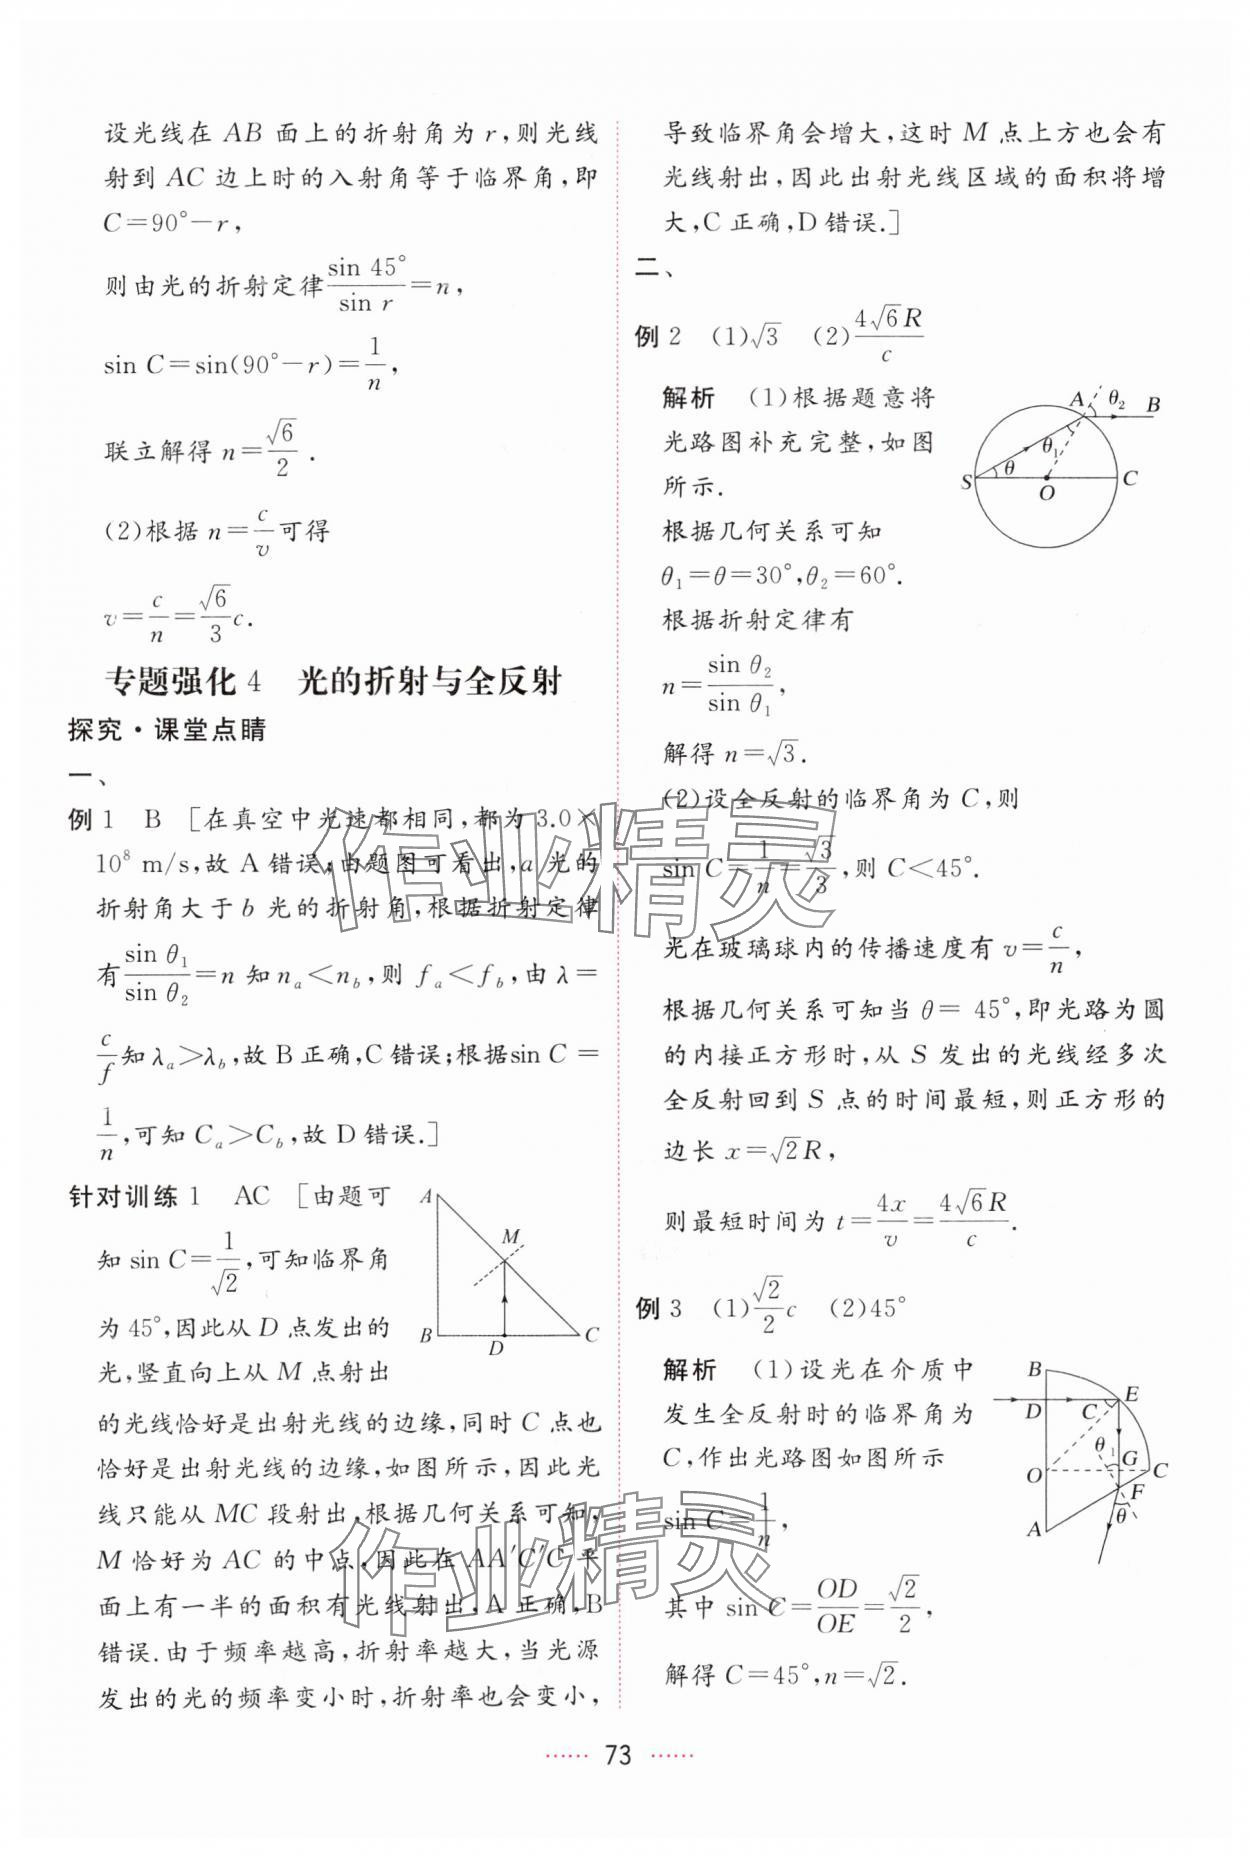 设光线在 AB 面上的折射角为 r,则光线
射到 AC 边上时的入射角等于临界角,即
C=90°-r,
则由光的折射定律 sin 45°/sin r=n,
sin C=sin(90°-r)=1/n,
联立解得 n=√6/2.
(2)根据 n=c/v可得
v=c/n=√6/3 c.
专题强化 4 光的折射与全反射
探究·课堂点睛
一、
例 1 B [在真空中光速都相同,都为 3.0×
10⁸ m/s,故 A 错误;由题图可看出,a 光的
折射角大于 b 光的折射角,根据折射定律
有sin θ₁/sin θ₂=n 知 nₐ<n_b,则 fₐ<f_b,由 λ=
c/f知 λₐ>λ_b,故 B 正确,C 错误;根据sin C=
1/n,可知 Cₐ>C_b,故 D 错误.]
针对训练 1 AC [由题可
知 sin C=1/√2,可知临界角
为 45°,因此从 D 点发出的
光,竖直向上从 M 点射出
A
M
B
D
C
的光线恰好是出射光线的边缘,同时 C 点也
恰好是出射光线的边缘,如图所示,因此光
线只能从 MC 段射出,根据几何关系可知,
M 恰好为 AC 的中点,因此在 AA′C′C 平
面上有一半的面积有光线射出,A 正确,B
错误.由于频率越高,折射率越大,当光源
发出的光的频率变小时,折射率也会变小,
导致临界角会增大,这时 M 点上方也会有
光线射出,因此出射光线区域的面积将增
大,C 正确,D 错误.]
二、
例 2 (1)√3 (2)4√6R/c
解析 (1)根据题意将
光路图补充完整,如图
所示.
A θ₂ B
θ₁
S θ
O
C
根据几何关系可知
θ₁=θ=30°,θ₂=60°.
根据折射定律有
n=sin θ₂/sin θ₁,
解得 n=√3.
(2)设全反射的临界角为 C,则
sin C=1/n=√3/3,则 C<45°.
光在玻璃球内的传播速度有 v=c/n,
根据几何关系可知当 θ= 45°,即光路为圆
的内接正方形时,从 S 发出的光线经多次
全反射回到 S 点的时间最短,则正方形的
边长 x=√2R,
则最短时间为 t=4x/v=4√6R/c.
例 3 (1)√2/2 c (2)45°
解析 (1)设光在介质中
发生全反射时的临界角为
C,作出光路图如图所示
B
D C E
θ₁
G
O C
F
A θ
sin C=1/n,
其中 sin C=OD/OE=√2/2,
解得 C=45°,n=√2.
73
作业精灵
作业精灵